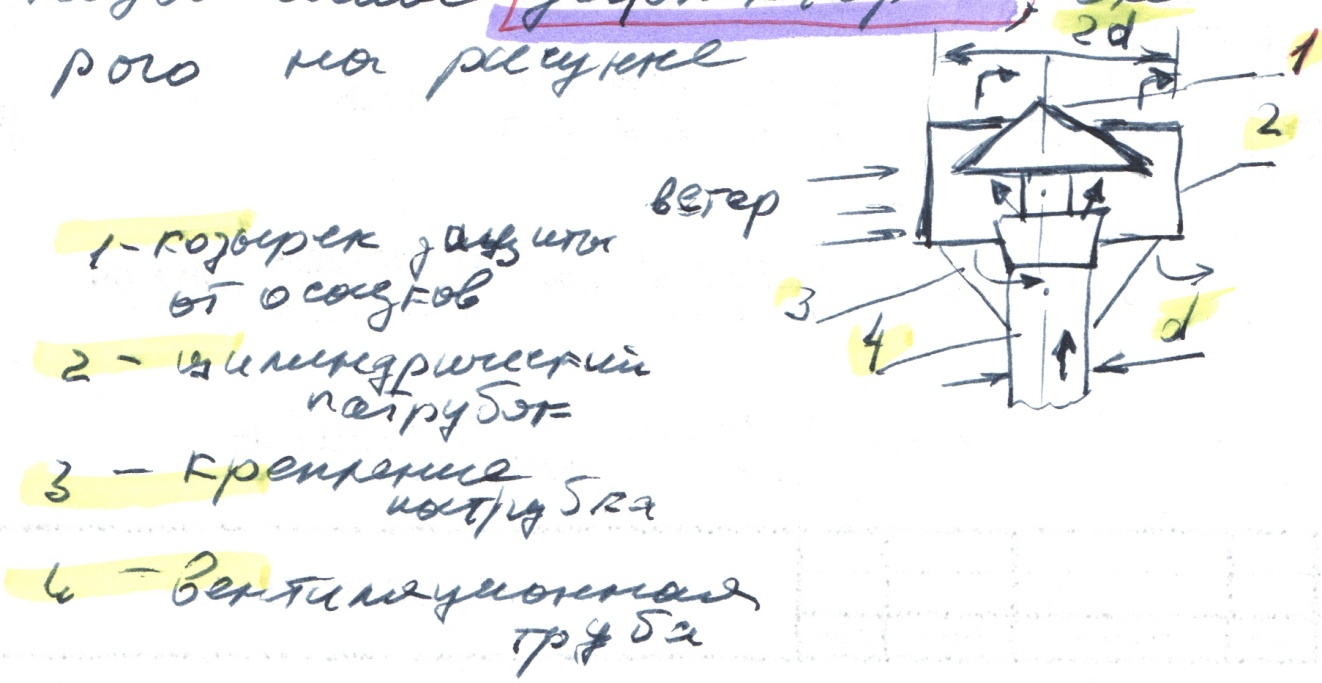 рого на рисунке
2d
1
2
ветер
1 - козырек защиты
от осадков
3
4
d
2 - цилиндрический
патрубок
3 - крепление
патрубка
4 - Вентиляционная
труба